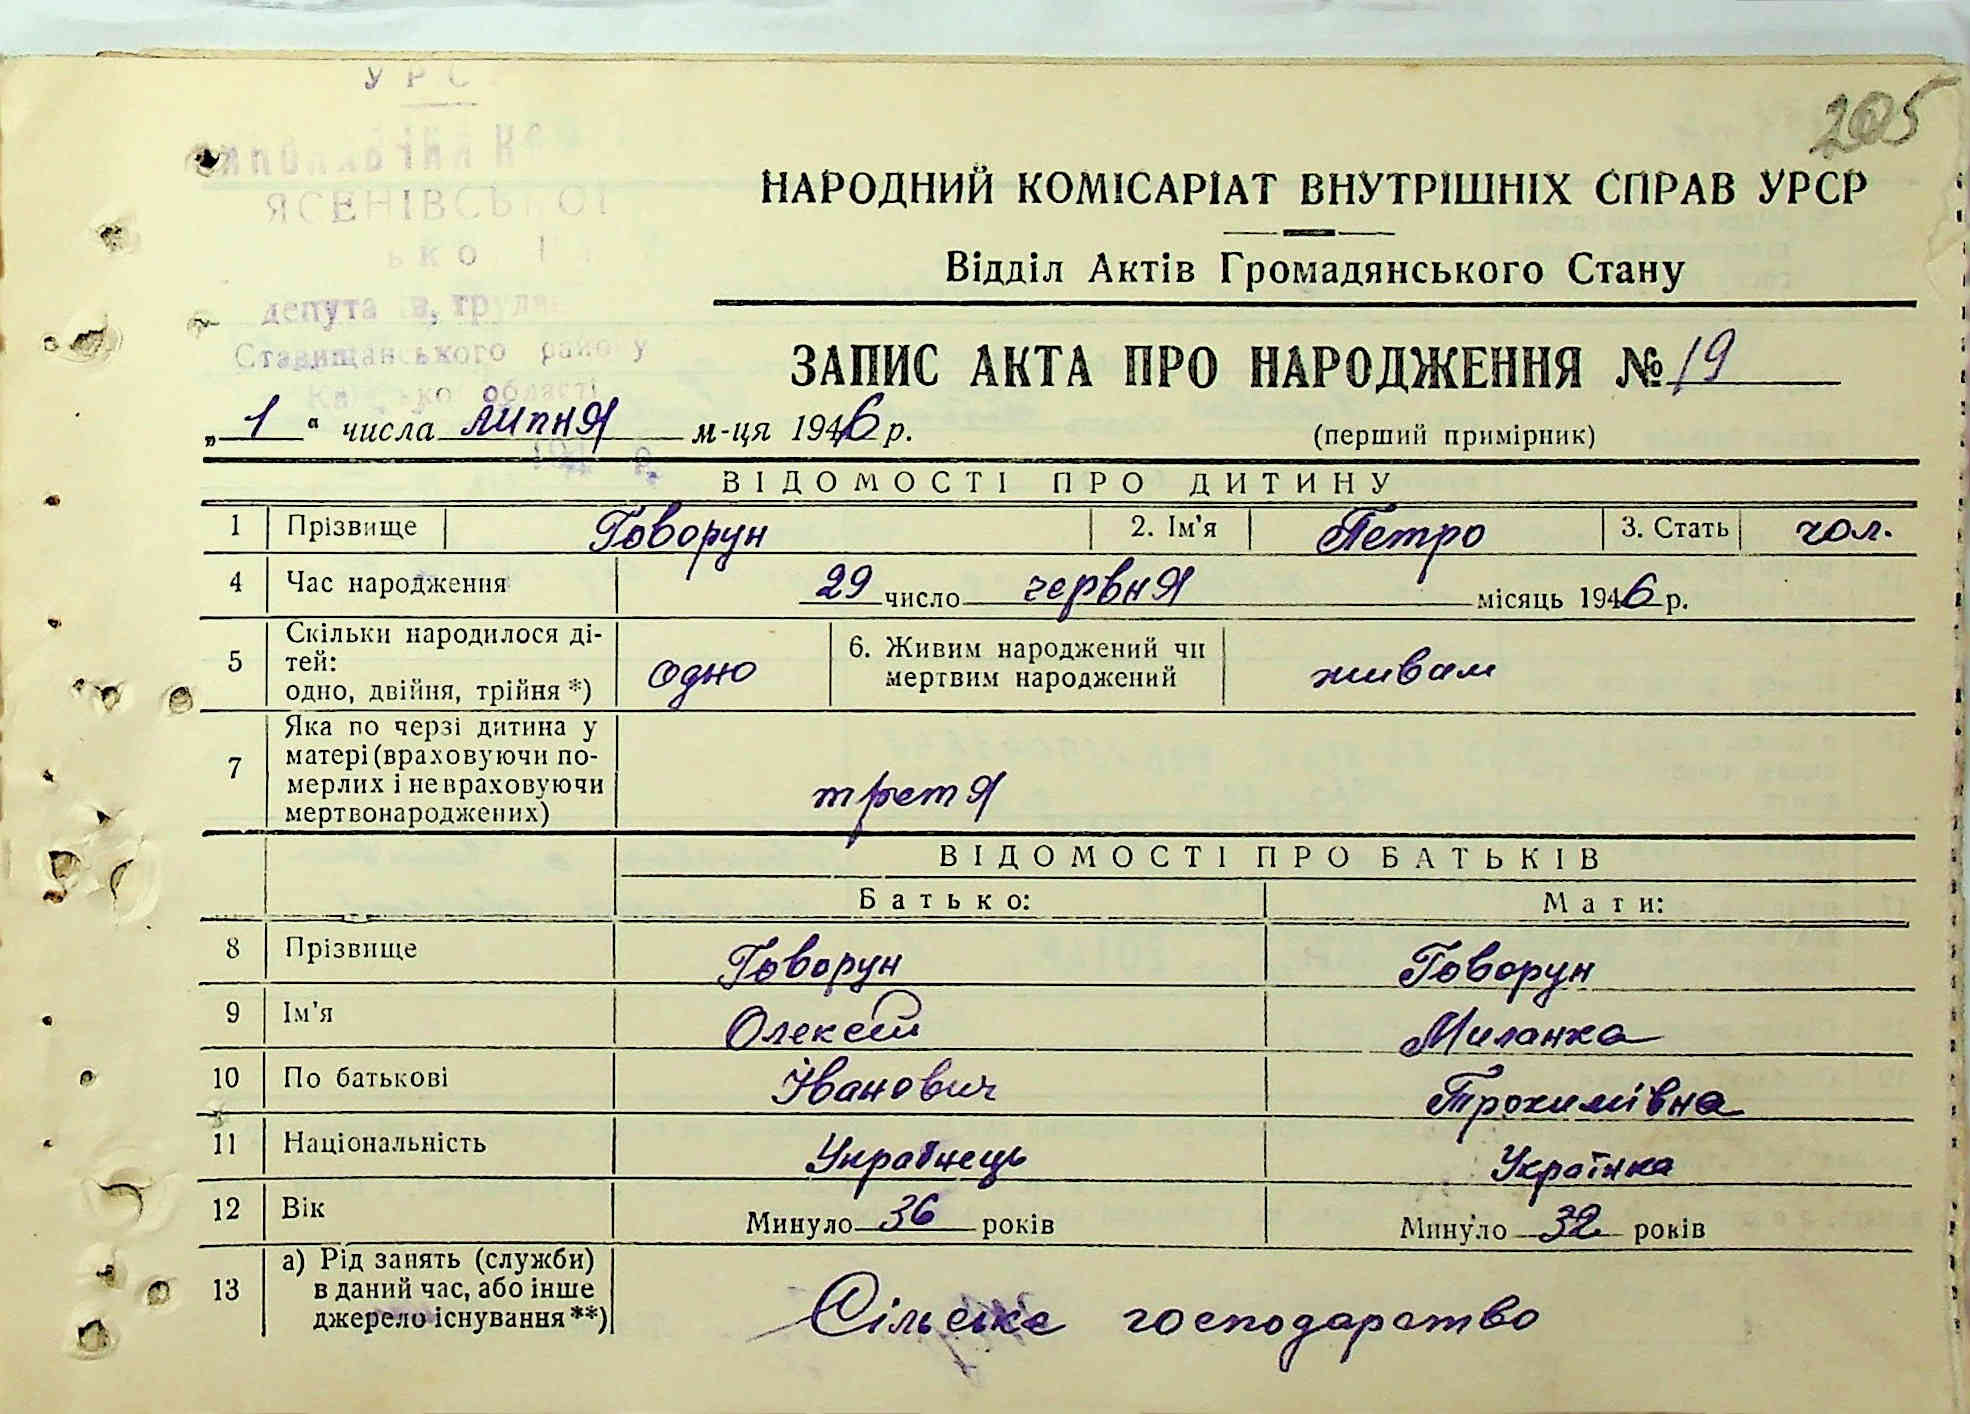 УРС
205
ЯСЕНІВСЬКОІ
НАРОДНИЙ КОМІСАРІАТ ВНУТРІШНІХ СПРАВ УРСР
Відділ Актів Громадянського Стану
Ставищанського району
області
ЗАПИС АКТА ПРО НАРОДЖЕННЯ № 19
„1“ числа липня м-ця 1946 р.
(перший примірник)
ВІДОМОСТІ ПРО ДИТИНУ
1 Прізвище Говорун 2. Ім'я Петро 3. Стать чол.
4 Час народження 29 число червня місяць 1946 р.
5 Скільки народилося ді-
тей:
одно, двійня, трійня *) одно
6. Живим народжений чи
мертвим народжений живам
7 Яка по черзі дитина у
матері (враховуючи по-
мерлих і не враховуючи
мертвонароджених) третя
ВІДОМОСТІ ПРО БАТЬКІВ
Батько: Мати:
8 Прізвище Говорун Говорун
9 Ім'я Олексій Миланка
10 По батькові Іванович Трохимівна
11 Національність Українець Українка
12 Вік Минуло 36 років Минуло 32 років
13 а) Рід занять (служби)
в даний час, або інше
джерело існування **) Сільське господарство